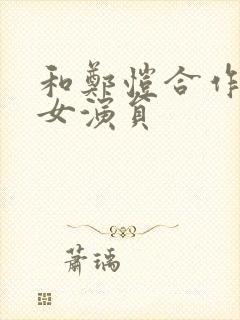 和鄭愷合作
女演員
蕭瑀